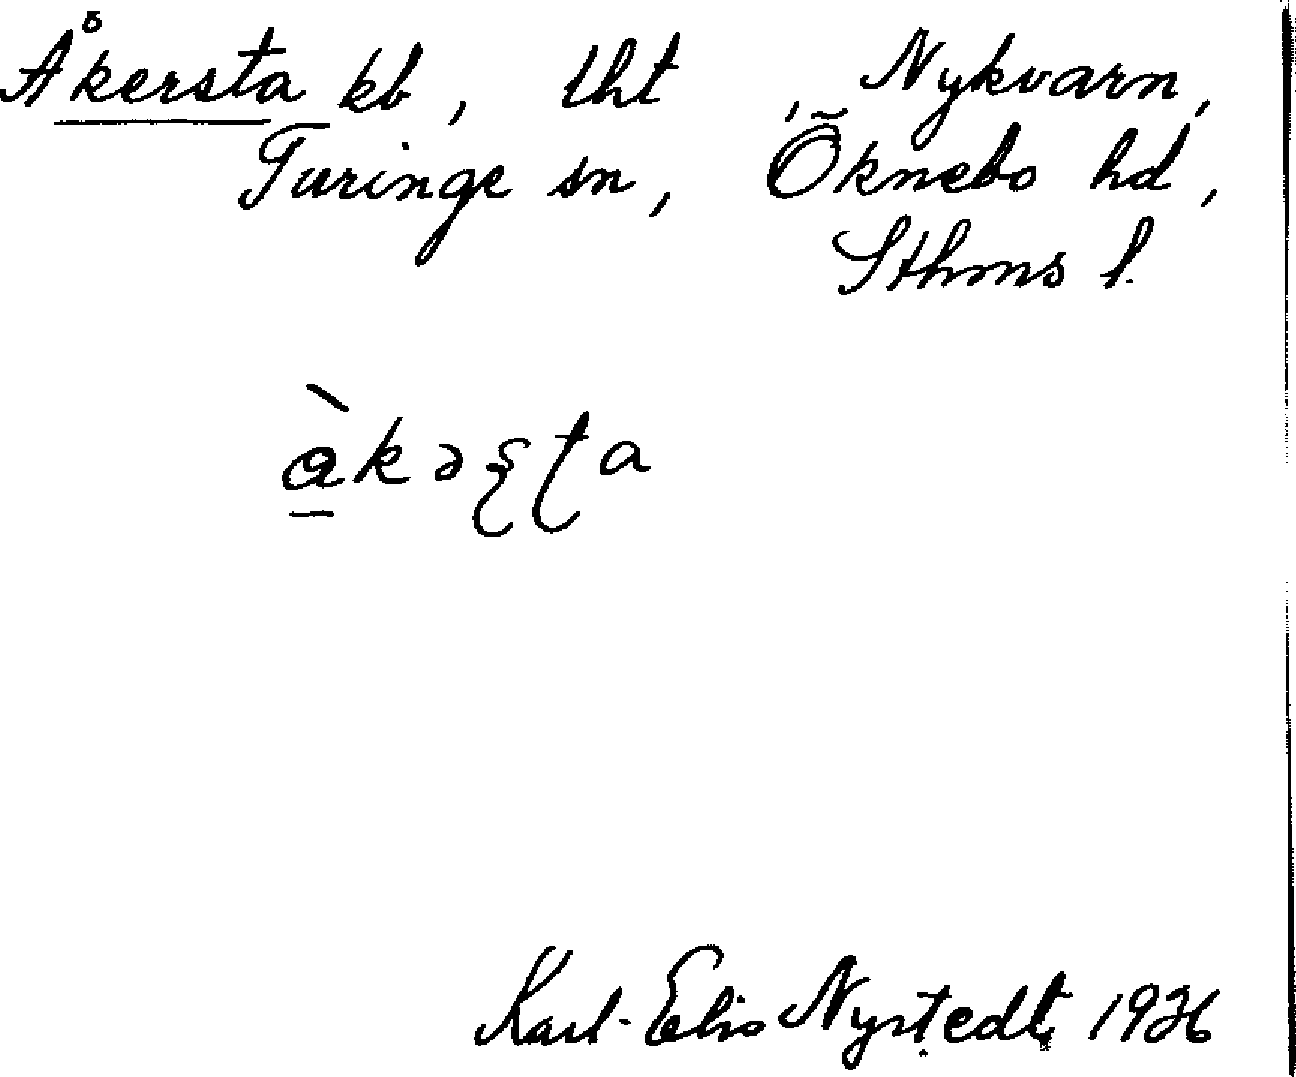 Åkersta kb, tht, Nykvarn,
Turinge sn, Öknebo hd,
Sthms l.
àkəʂʈa
Karl-Elis Nystedt 1926